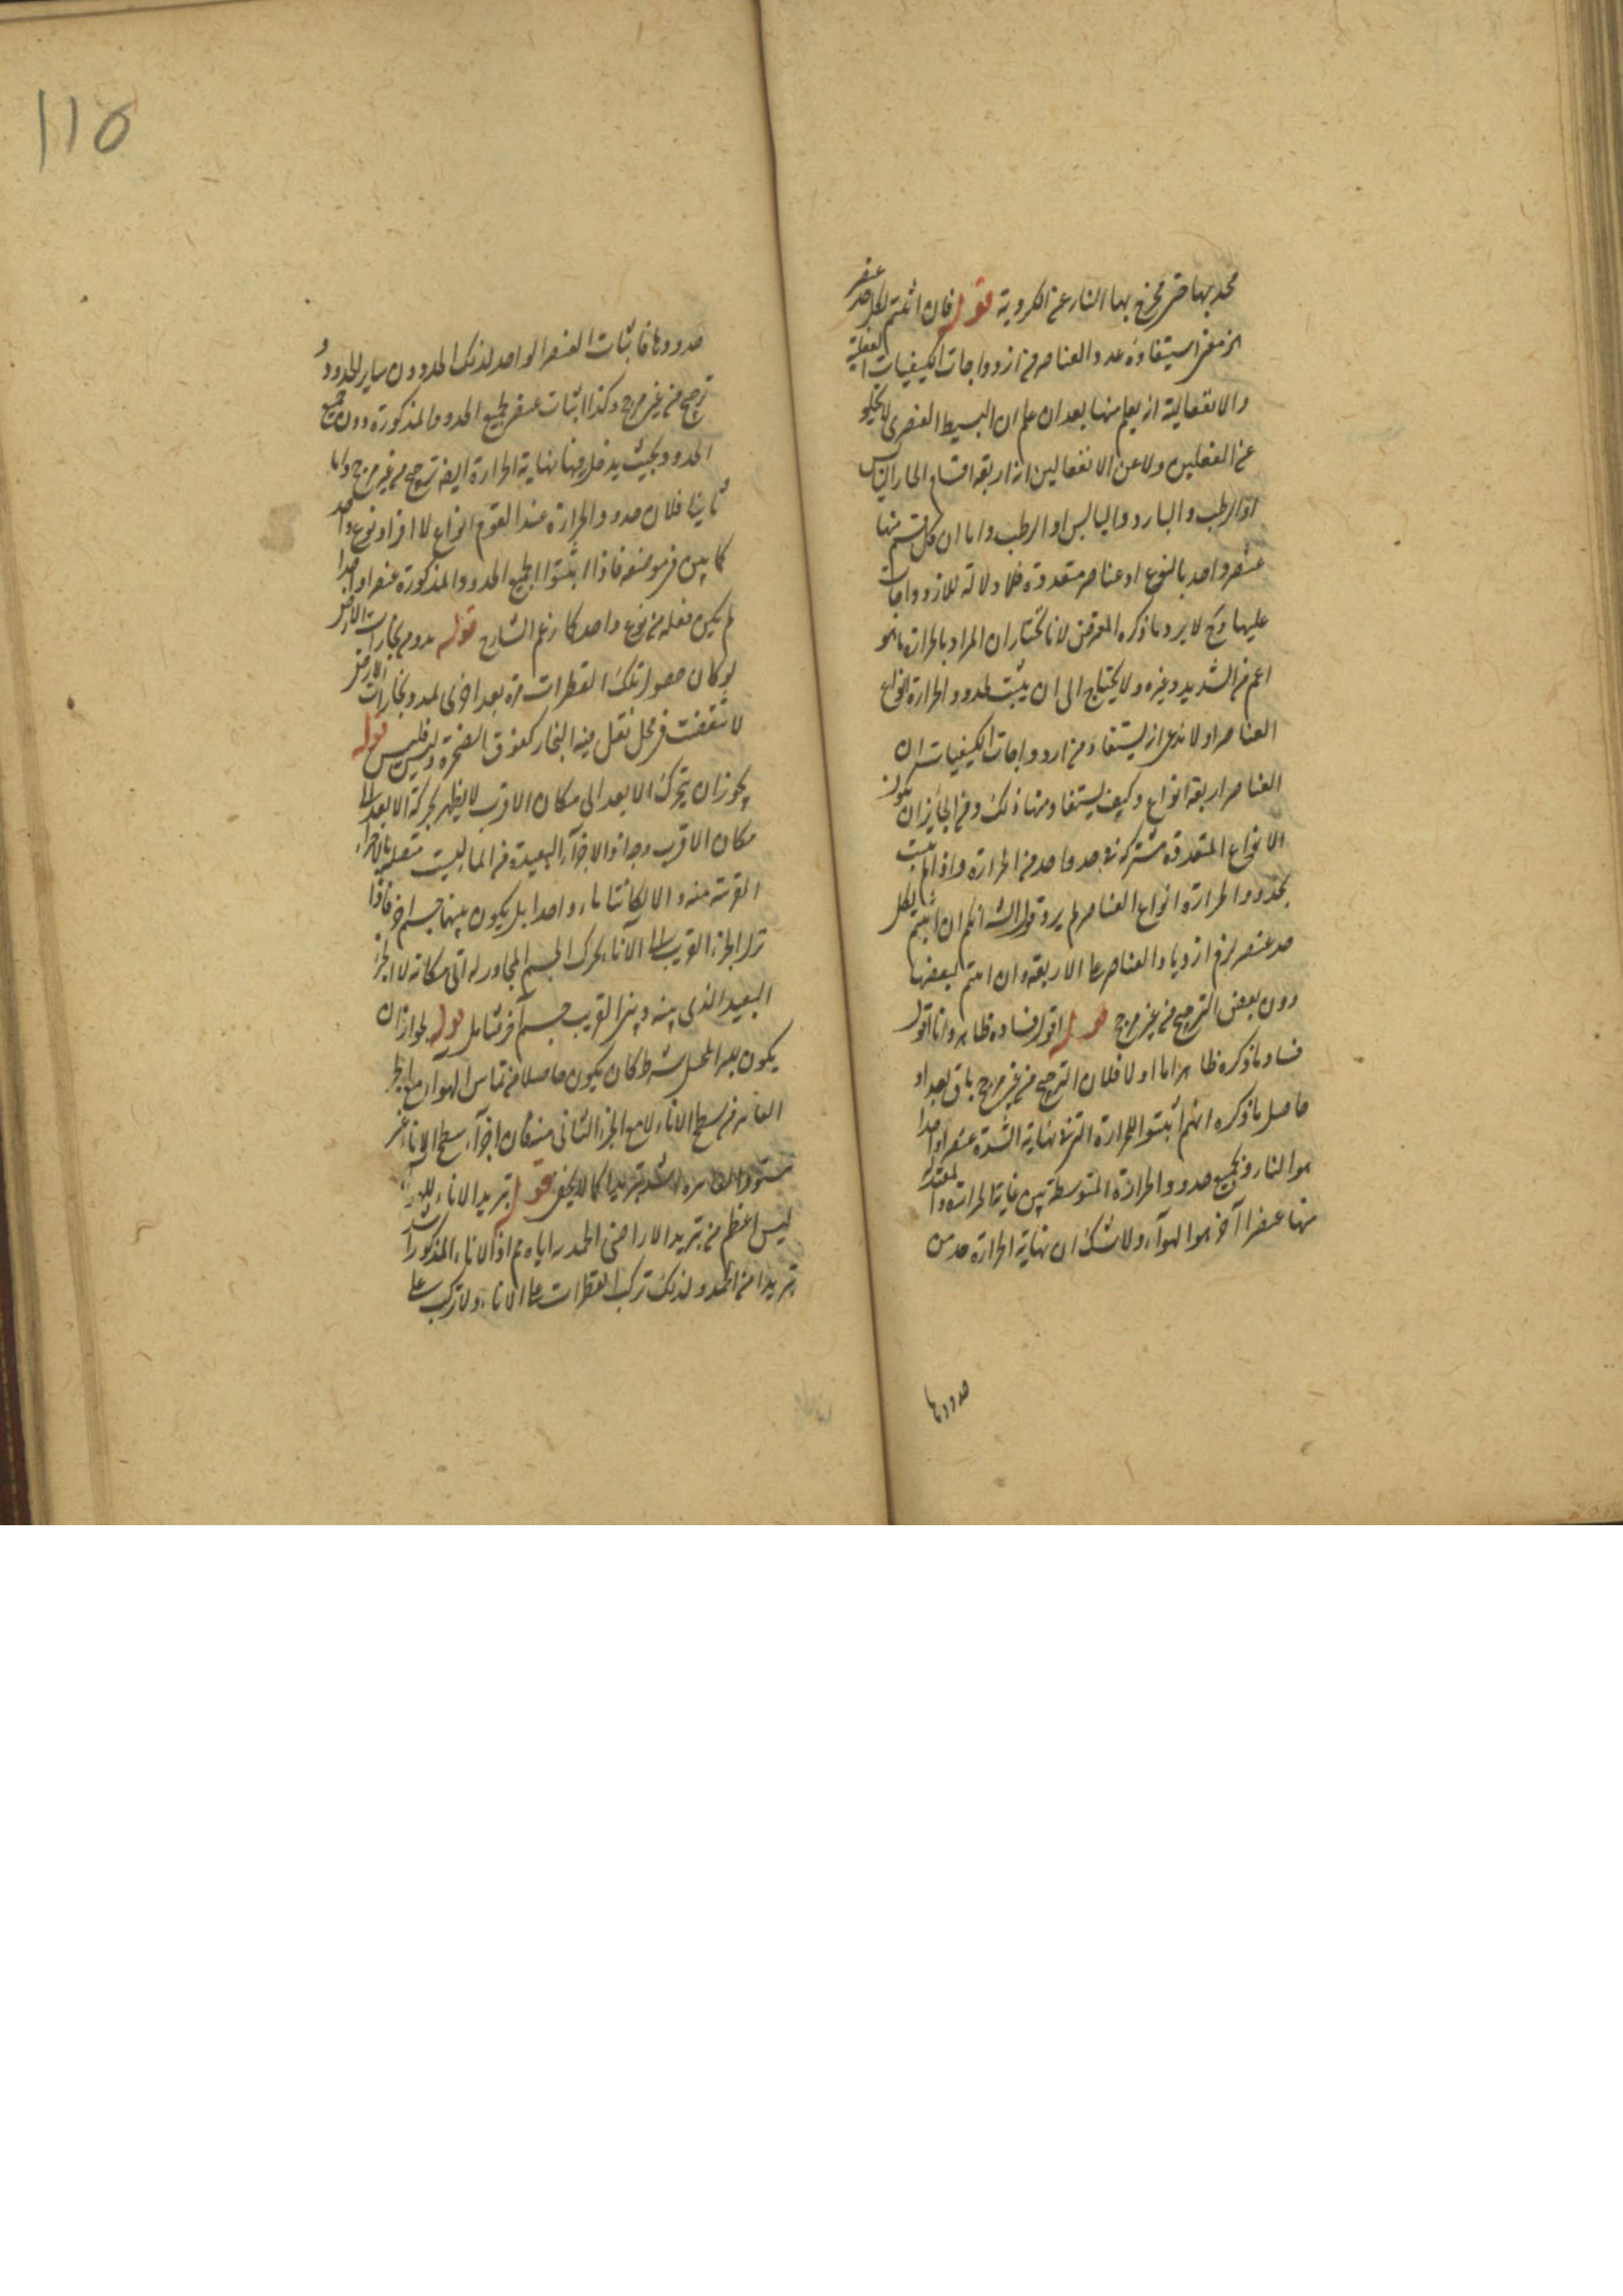 محدبها حتى يخرج بها النار عن الكروية قوله فان اثبتم لكل حد عنصر
الخ معنى استيفاده عدد العناصر من ازدواجات الكيفيات الفعلية
والانفعالية انه يعلم منها بعد ان علم ان البسيط العنصرى لا يخلو
عن الفعليين ولا عن الانفعاليين انه اربعة اقسام الحار اليابس
او الرطب والبارد واليابس او الرطب واما ان كل قسم منها
عنصر واحد بالنوع او عناصر متعددة فلا دلالة للازدواجات
عليها وح لا يرد ما ذكره المعترض لانا نختار ان المراد بالحرارة ما هو
اعم من الشديد وغيره ولا يحتاج الى ان يثبت لحدود الحرارة انواع
العناصر اولا ندعى انه يستفاد من ازدواجات الكيفيات ان
العناصر اربعة انواع وكيف يستفاد منها ذلك ومن الجائز ان يكون
الانواع المتعددة مشتركة فى حد واحد من الحرارة واذا لم يثبت
بحدود الحرارة انواع العناصر لم يرد قول الش انكم ان اثبتم لكل
حد عنصر لزم ازدياد العناصر على الاربعة وان اثبتم لبعضها
دون بعض الترجيح من غير مرجح قوله اقول فساده ظاهر وانا اقول
فساد ما ذكره ظاهر اما اولا فلان الترجيح من غير مرجح باق بعد اذ
حاصل ما ذكره انهم اثبتوا للحرارة التى فى نهاية الشدة عنصرا واحدا
هو النار ولجميع حدود الحرارة المتوسطة بين غاية الحرارة و
منها عنصرا آخر هو الهوآء ولا شك ان نهاية الحرارة حد من
حدودها
110
حدودها فاثبات العنصر الواحد لذلك الحد دون ساير الحدود
ترجيح من غير مرجح وكذا اثبات عنصر لجميع الحدود المذكورة دون جميع
الحدود بحيث يدخل فيها نهاية الحرارة ايضا ترجيح من غير مرجح واما
ثانيا فلان حدود الحرارة عند القوم انواع لا افراد نوع واحد
كما بين فى موضعه فاذا اثبتوا لجميع الحدود المذكورة عنصرا واحدا
لم يكن فعله من نوع واحد كما زعم الشارح قوله بدوم بخارات الارض
لو كان حصول تلك القطرات مرة بعد اخرى لمدد بخارات الارض
لانقضت فى محل نقل فيه البخار كفوق الصخرة وليس فليس قوله
يجوز ان يتحرك الابعد الى مكان الاقرب لا يظهر بحركة الابعد الى
مكان الاقرب وجه اذ الاجزآء البعيدة من الماء ليست متصلة بالاجزاء
القريبة منه والا لكانتا ماء واحدا بل يكون بينهما جسم آخر فاذا
نزل الجزء القريب الى الاناء يحرك الجسم المجاور له الى مكانه لا الجزء
البعيد الذى بينه وبين القريب جسم آخر تأمل قوله لجواز ان
يكون للمحل شرط كان يكون حاصلا من تماس الهواء مع الجزء
من سطح الاناء لا مع الجزء الثانى منه فان اجزآء سطح الاناء غير
تبريدا كما لا يخفى قوله تبريد الاناء
ليس اعظم من تبريد الاراضى الجمد اياه مم اذ الاناء المذكور اشد
تبريدا من الجمد ولذلك تركب القطرات على الاناء ولا تركب على